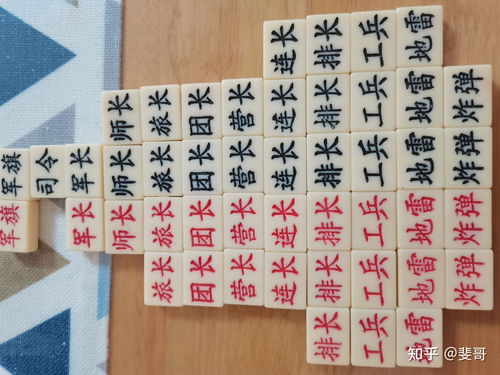 军旗 军旗
司令
军长 军长
师长 师长 师长
旅长 旅长 旅长 旅长
团长 团长 团长 团长
营长 营长 营长 营长
连长 连长 连长 连长 连长
排长 排长 排长 排长 排长 排长
工兵 工兵 工兵 工兵 工兵 工兵
地雷 地雷 地雷 地雷 地雷 地雷
炸弹 炸弹 炸弹 炸弹
知乎 @斐哥